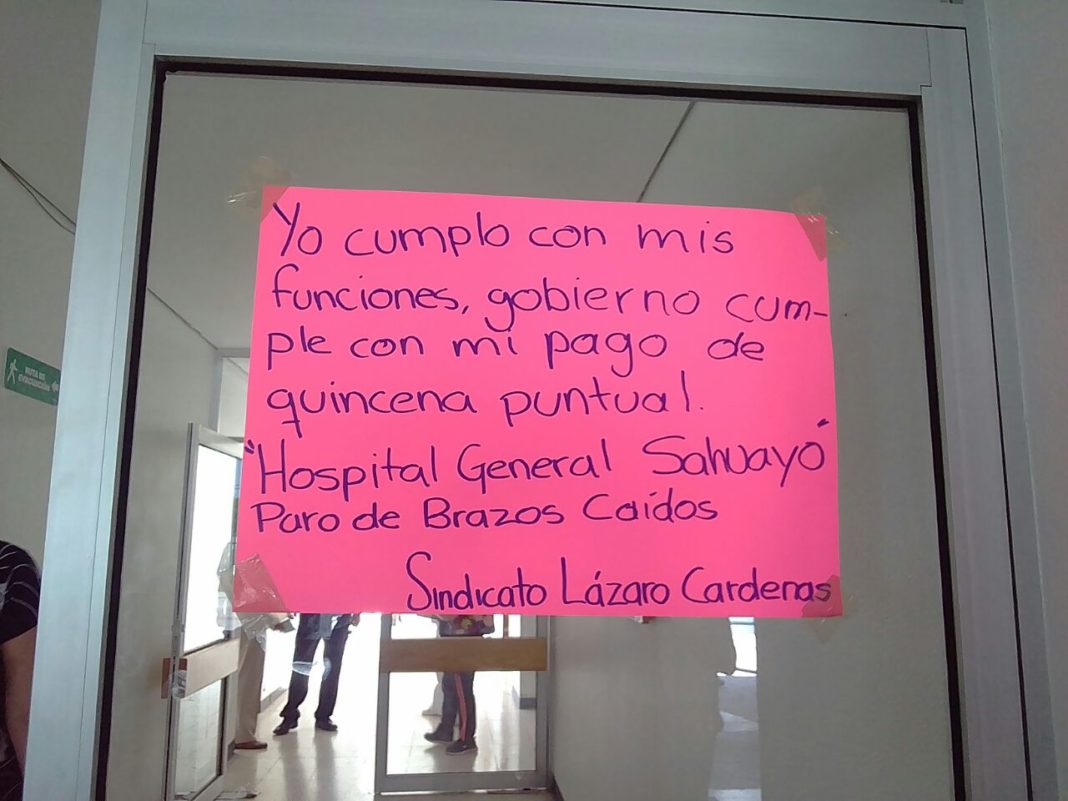 RUTA DE
EVACUACIÓN
Yo cumplo con mis
funciones, gobierno cum-
ple con mi pago de
quincena puntual.
"Hospital General Sahuayo"
Paro de Brazos Caídos
Sindicato Lázaro Cardenas